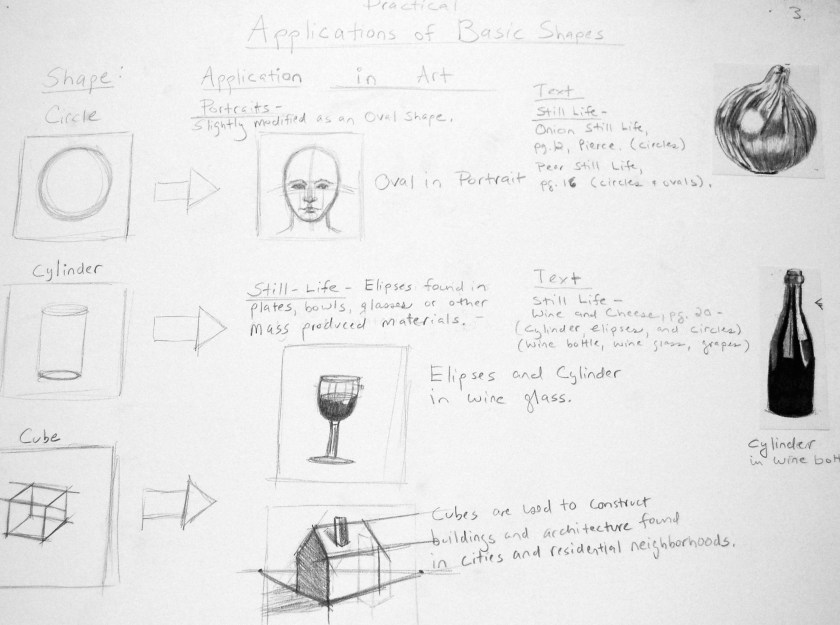 Practical
Applications of Basic Shapes
3.
Shape:
Application in Art
Circle
Portraits -
Slightly modified as an Oval Shape.
Oval in Portrait
Text
Still Life -
Onion Still Life,
pg. 12, Pierce. (circles)
Pear Still Life,
pg. 16 (circles + ovals).
Cylinder
Still-Life - Elipses found in
plates, bowls, glasses or other
Mass produced materials. -
Elipses and Cylinder
in wine glass.
Text
Still Life -
Wine and Cheese, pg. 20 -
(Cylinder, elipses, and circles)
(wine bottle, wine glass, grapes)
Cylinder
in wine bott
Cube
Cubes are used to construct
buildings and architecture found
in cities and residential neighborhoods.